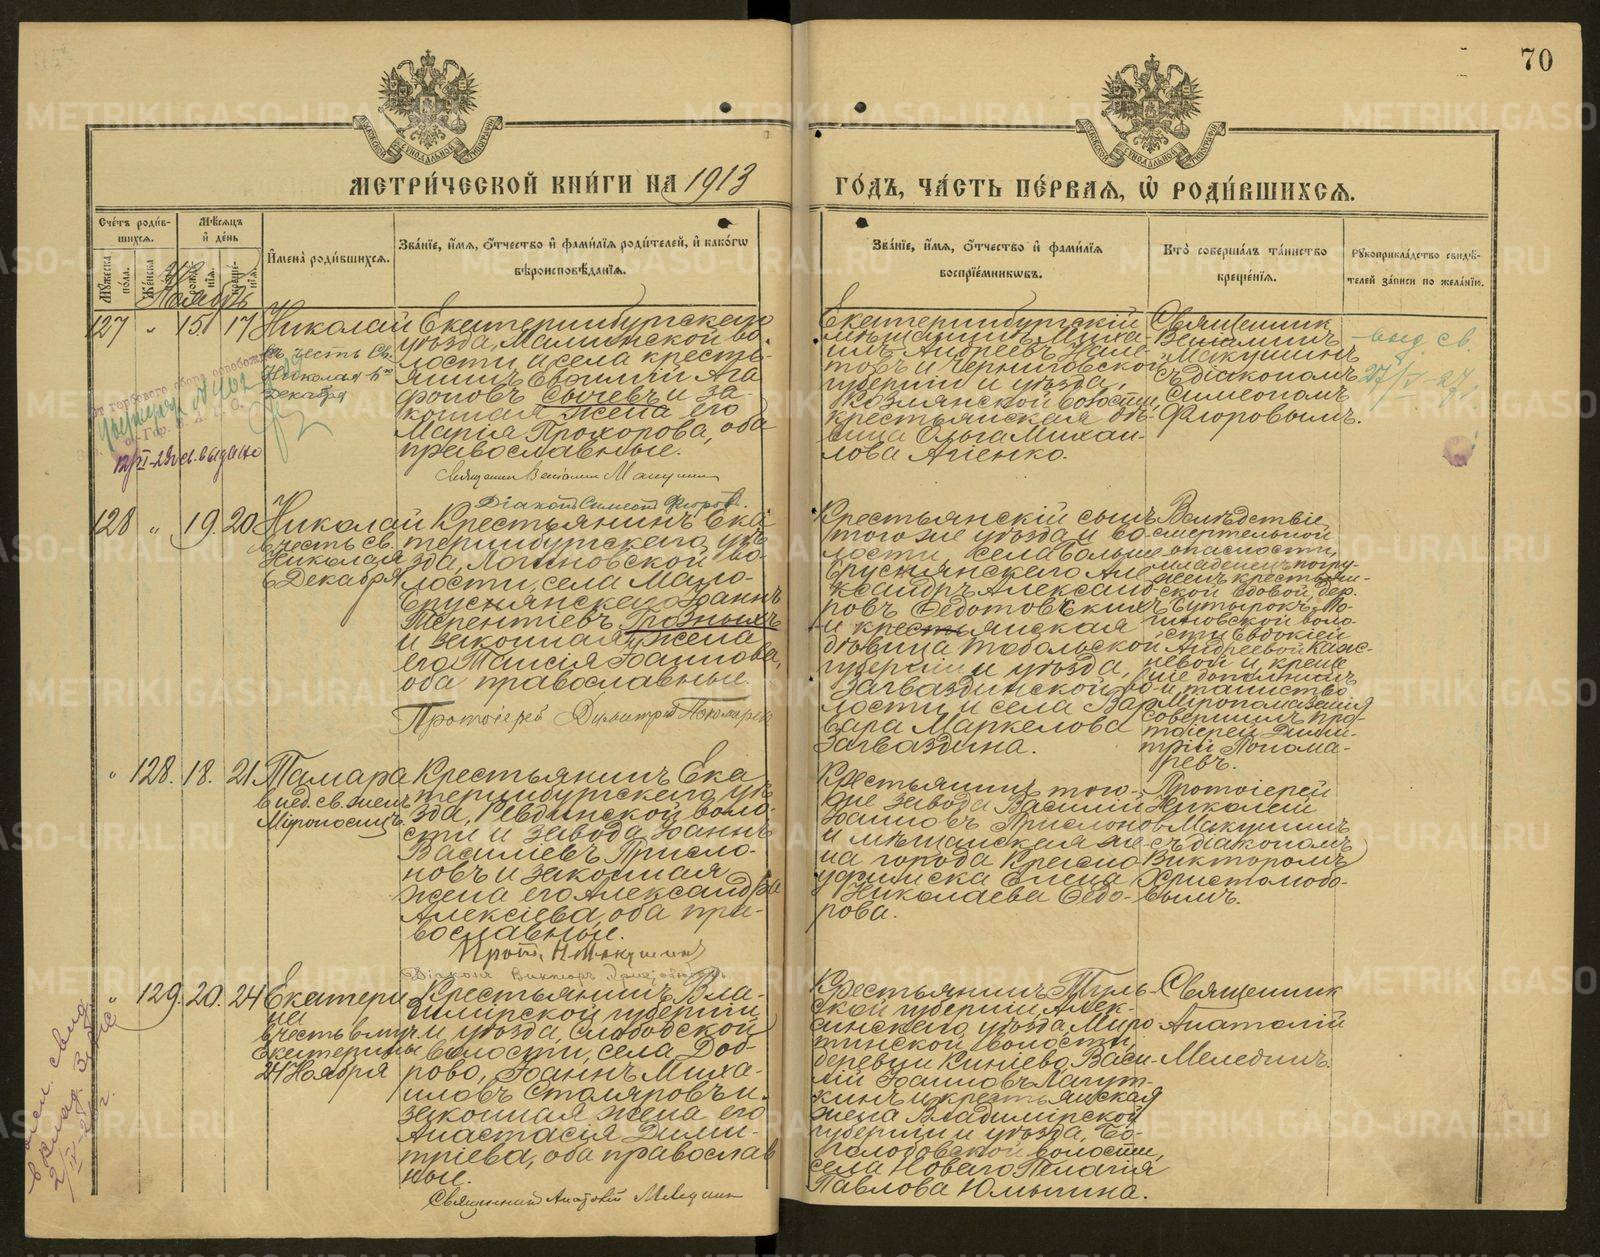 70
МЕТРИ́ЧЕСКОЙ КНИ́ГИ НА 1913
ГО́ДЪ, ЧА́СТЬ ПЕ́РВАЯ, Ѡ РОДИ́ВШИХСЯ.
Сче́тъ роди́в-
шихся.
Мѣ́сяцъ
и҆ де́нь
И҆мена̀ роди́вшихся.
Зва́нїе, и҆́мя, ѻ҆́тчество и҆ фами́лїя роди́телей, и҆ како́гѡ
вѣроисповѣ́данїя.
Зва́нїе, и҆́мя, ѻ҆́тчество и҆ фами́лїя
воспрїе́мникѡвъ.
Кто̀ соверша́лъ та́инство
креще́нїя.
Рꙋкоприкла́дство свидѣ́-
телей за́писи по жела́нїю.
Ноябрь
127 " 15. 17
Николай
въ честь Св.
Николая 6го
Декабря
Екатеринбургскаго
уѣзда, Маминской во-
лости и села кресть-
янинъ Евфимій Ага
фоновъ Сычевъ и за-
конная жена его
Марія Прохорова, оба
православные.
Священникъ Веніаминъ Макушинъ
Діаконъ Симеонъ Флоровъ.
Екатеринбургскій
мѣщанинъ Миха-
илъ Андреевъ
и Черниговской
губерніи и уѣзда,
волости,
крестьянская дѣ-
вица Ольга Михаи-
лова Агіенко.
Священникъ
Веніаминъ
Макушинъ
съ діакономъ
Симеономъ
Флоровымъ.
выд. св.
12/VI-23 св. выдано
128 " 19. 20
Николай
въ честь св.
Николая
6 Декабря
Крестьянинъ Ека
теринбургскаго уѣ
зда, Логиновской во-
лости, села Мало-
Бруснянскаго Іоаннъ
Терентіевъ Грозныхъ
и законная жена
его Таисія Іоаннова,
оба православные.
Протоіерей Димитрій Пономаревъ
Крестьянскій сынъ
того же уѣзда и во-
лости, села Больше
Бруснянскаго Але
ксандръ Александ
ровъ Федотовскихъ
и крестьянская
дѣвица Тобольской
губерніи и уѣзда,
Загваздинской во-
лости и села Вар
вара Маркелова
Загваздина.
Вслѣдствіе
смертельной
опасности,
младенецъ погру-
женъ крестьян-
ской вдовой, дер.
Бутырокъ, Ло-
гиновской воло-
сти Евдокіей
Андреевой Каяс-
невой и, креще
ніе дополнилъ
и таинство
Мѵропомазанія
совершилъ про-
тоіерей Дими-
трій Понома-
ревъ.
" 128. 18. 21
Тамара
въ нед. св. женъ
Мѵроносицъ.
Крестьянинъ Ека
теринбургскаго уѣ
зда, Ревдинской воло-
сти и завода, Іоаннъ
Василіевъ Присло-
новъ и законная
жена его Александра
Алексіева, оба пра-
вославные.
Прот. Н. Макушинъ
Діаконъ Викторъ Христолюбовъ
Крестьянинъ того-
же завода Василій
Іоанновъ Прислоновъ
и мѣщанская же-
на города Красно
уфимска Елена
Николаева Ѳедо-
рова.
Протоіерей
Николай
Макушинъ
съ діакономъ
Викторомъ
Христолюбо-
вымъ.
" 129. 20. 24
Екатери
на
въ честь влмч.
Екатерины
24 Ноября
Крестьянинъ Вла-
димірской губерніи
и уѣзда, Слободской
волости, села Доб-
рово, Іоаннъ Миха-
иловъ Столяровъ и
законная жена его
Анастасія Дими-
тріева, оба православ
ные.
Священникъ Анатолій Меледин
Крестьянинъ Туль-
ской губерніи Алек-
синскаго уѣзда, Миро
тинской волости,
деревни Князево, Васи-
лій Іоанновъ Лагут-
кинъ и крестьянская
жена Владимірской
губерніи и уѣзда, Бо-
голюбовской волости,
села Новаго Пелагія
Павлова Юмынина.
Священникъ
Анатолій
Мелединъ.